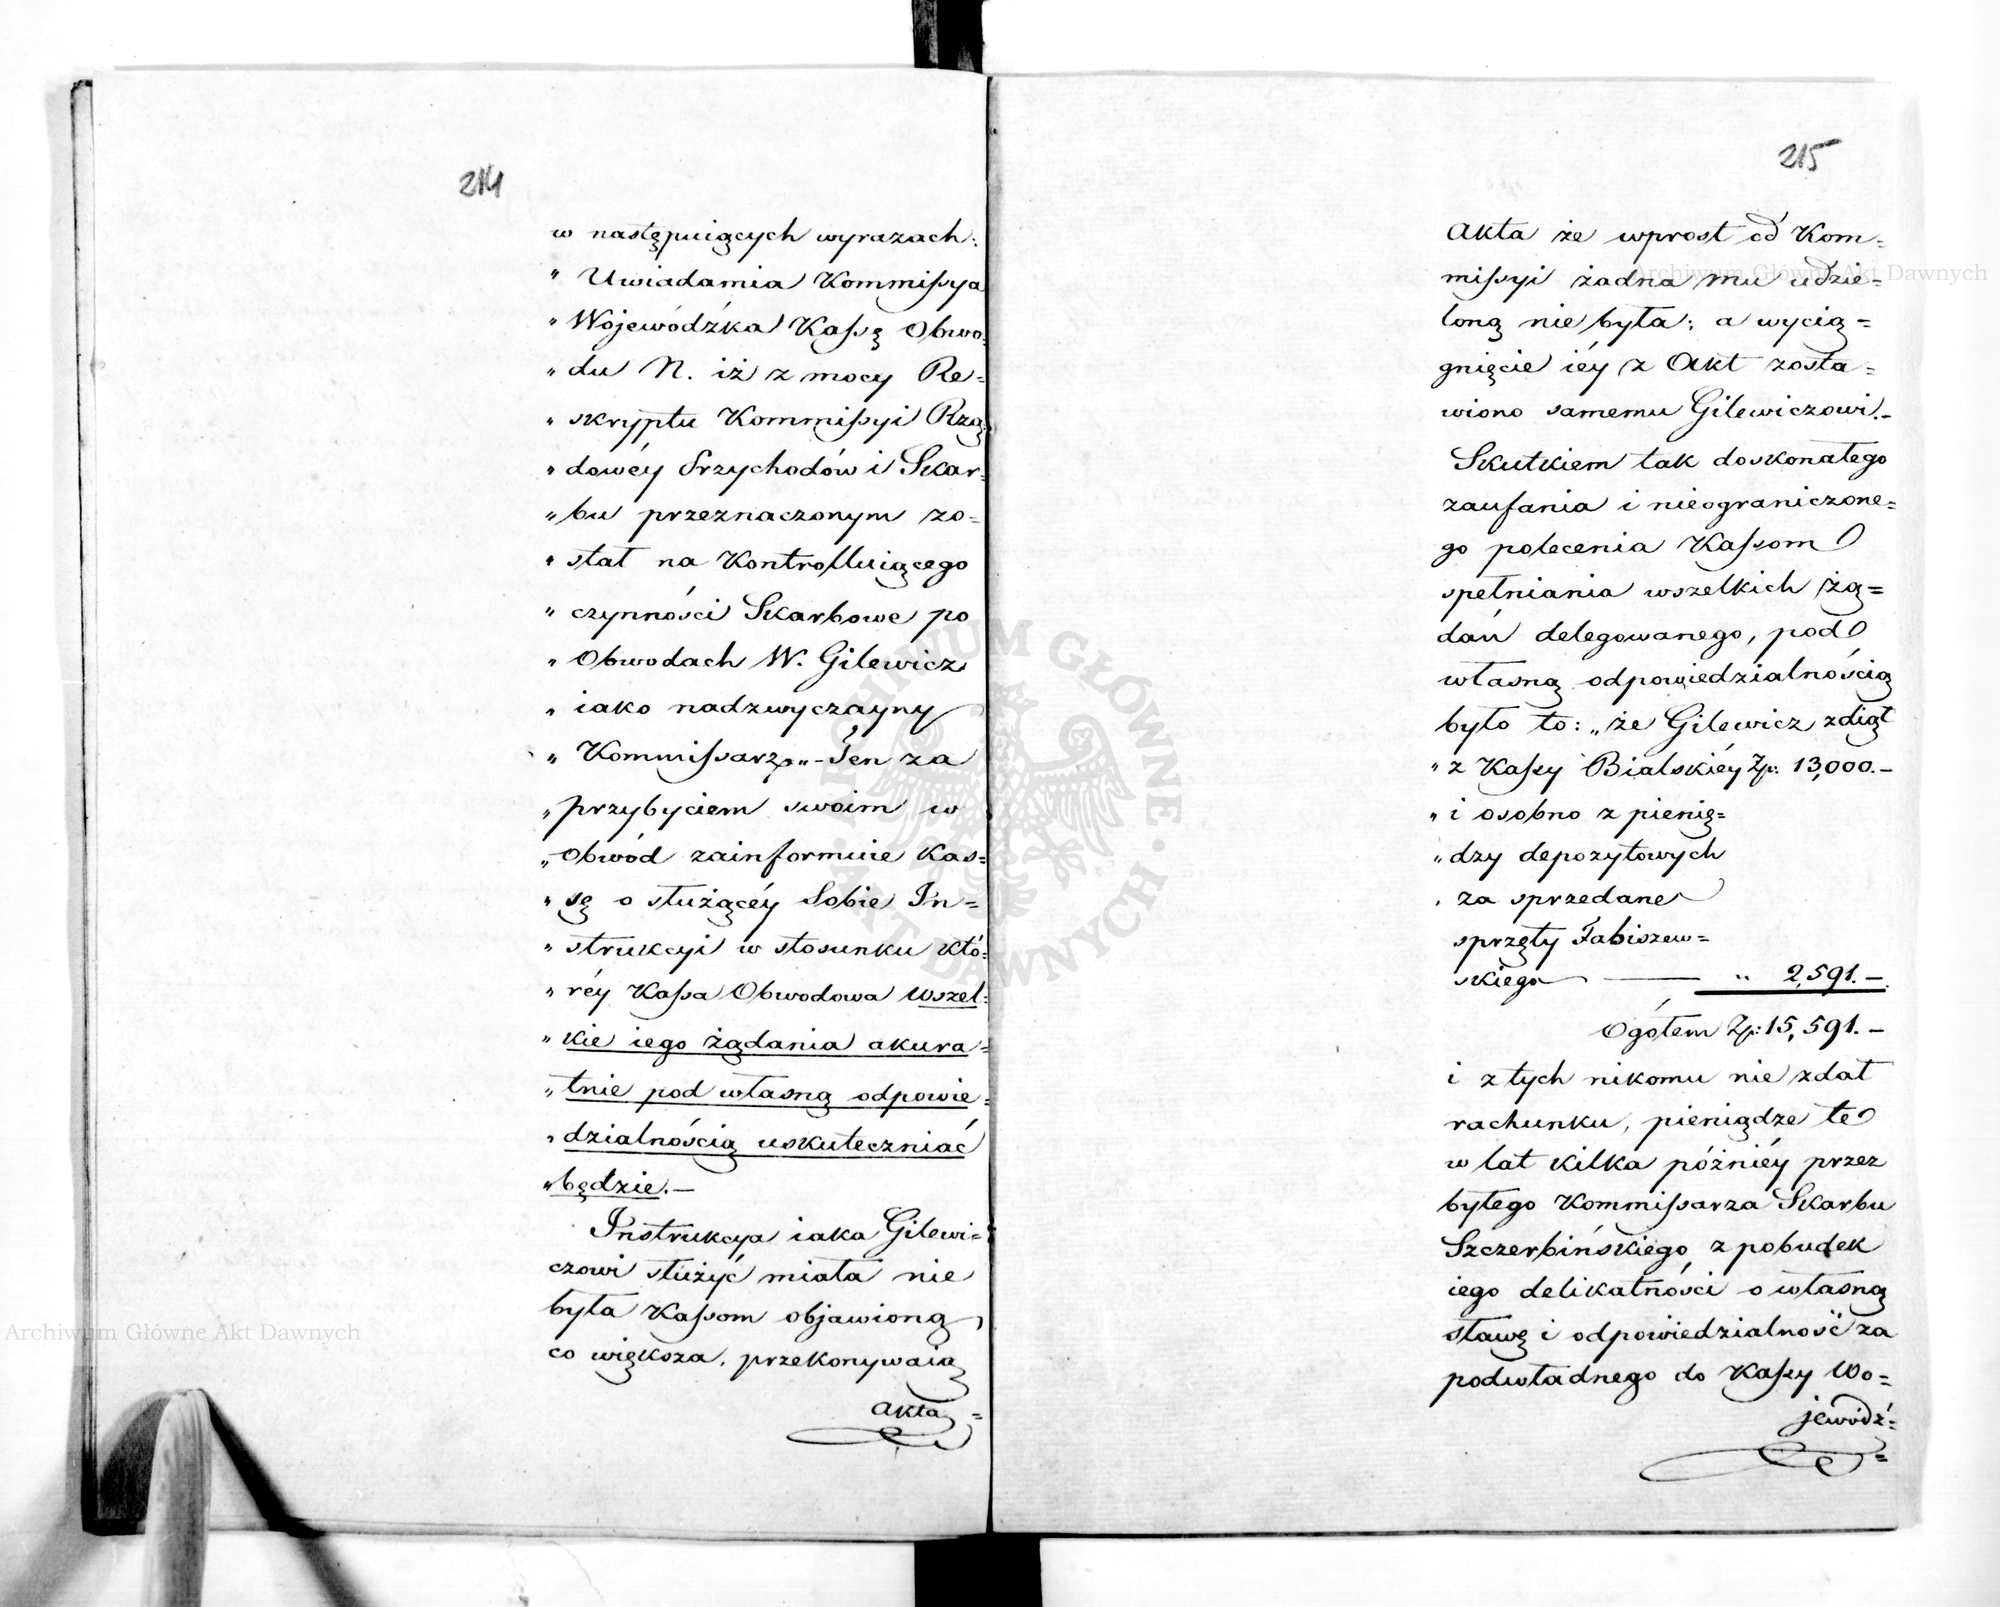 214
w następuiących wyrazach:
" Uwiadamia Kommissya
" Wojewódzka Kassę Obwo-
" du N. iż z mocy Re-
" skryptu Kommissyi Rzą-
" dowéy Przychodów i Skar-
" bu przeznaczonym zo-
" stał na Kontrolluiącego
" czynności Skarbowe po
" Obwodach W. Gilewicz
" iako nadzwyczayny
" Kommissarz„ - Ten za
" przybyciem swoim w
" Obwód zainformuie Kas=
" sę o służącéy Sobie In=
" strukcyi w stosunku któ-
" réy Kassa Obwodowa wszel=
" kie iego żądania akura=
" tnie pod własną odpowie=
" dzialnością uskuteczniać
" będzie.-
Instrukcya iaka Gilewi=
czowi służyć miała nie
była Kassom objawioną,
co większa, przekonywaią
akta=
215
Akta że wprost od Kom=
missyi żadna mu udzie=
loną nie była; a wycią=
gnięcie iéy z Akt zosta=
wiono samemu Gilewiczowi.-
Skutkiem tak doskonałego
zaufania i nieograniczone=
go polecenia Kassom
spełniania wszelkich żą=
dań delegowanego, pod
własną odpowiedzialnością
było to: „że Gilewicz zdiął
" z Kassy Bialskiéy Zp: 13,000.-
" i osobno z pienię=
" dzy depozytowych
" za sprzedane
sprzęty Fabiszew=
skiego — " 2,591.-
Ogółem Zp: 15,591.-
i z tych nikomu nie zdał
rachunku, pieniądze te
w lat kilka późniéy przez
byłego Kommissarza Skarbu
Szczerbińskiego z pobudek
iego delikatności o własną
sławę i odpowiedzialność za
podwładnego do Kassy Wo=
jewódz=
Archiwum Główne Akt Dawnych
Archiwum Główne Akt Dawnych
ARCHIWUM GŁÓWNE · AKT DAWNYCH ·